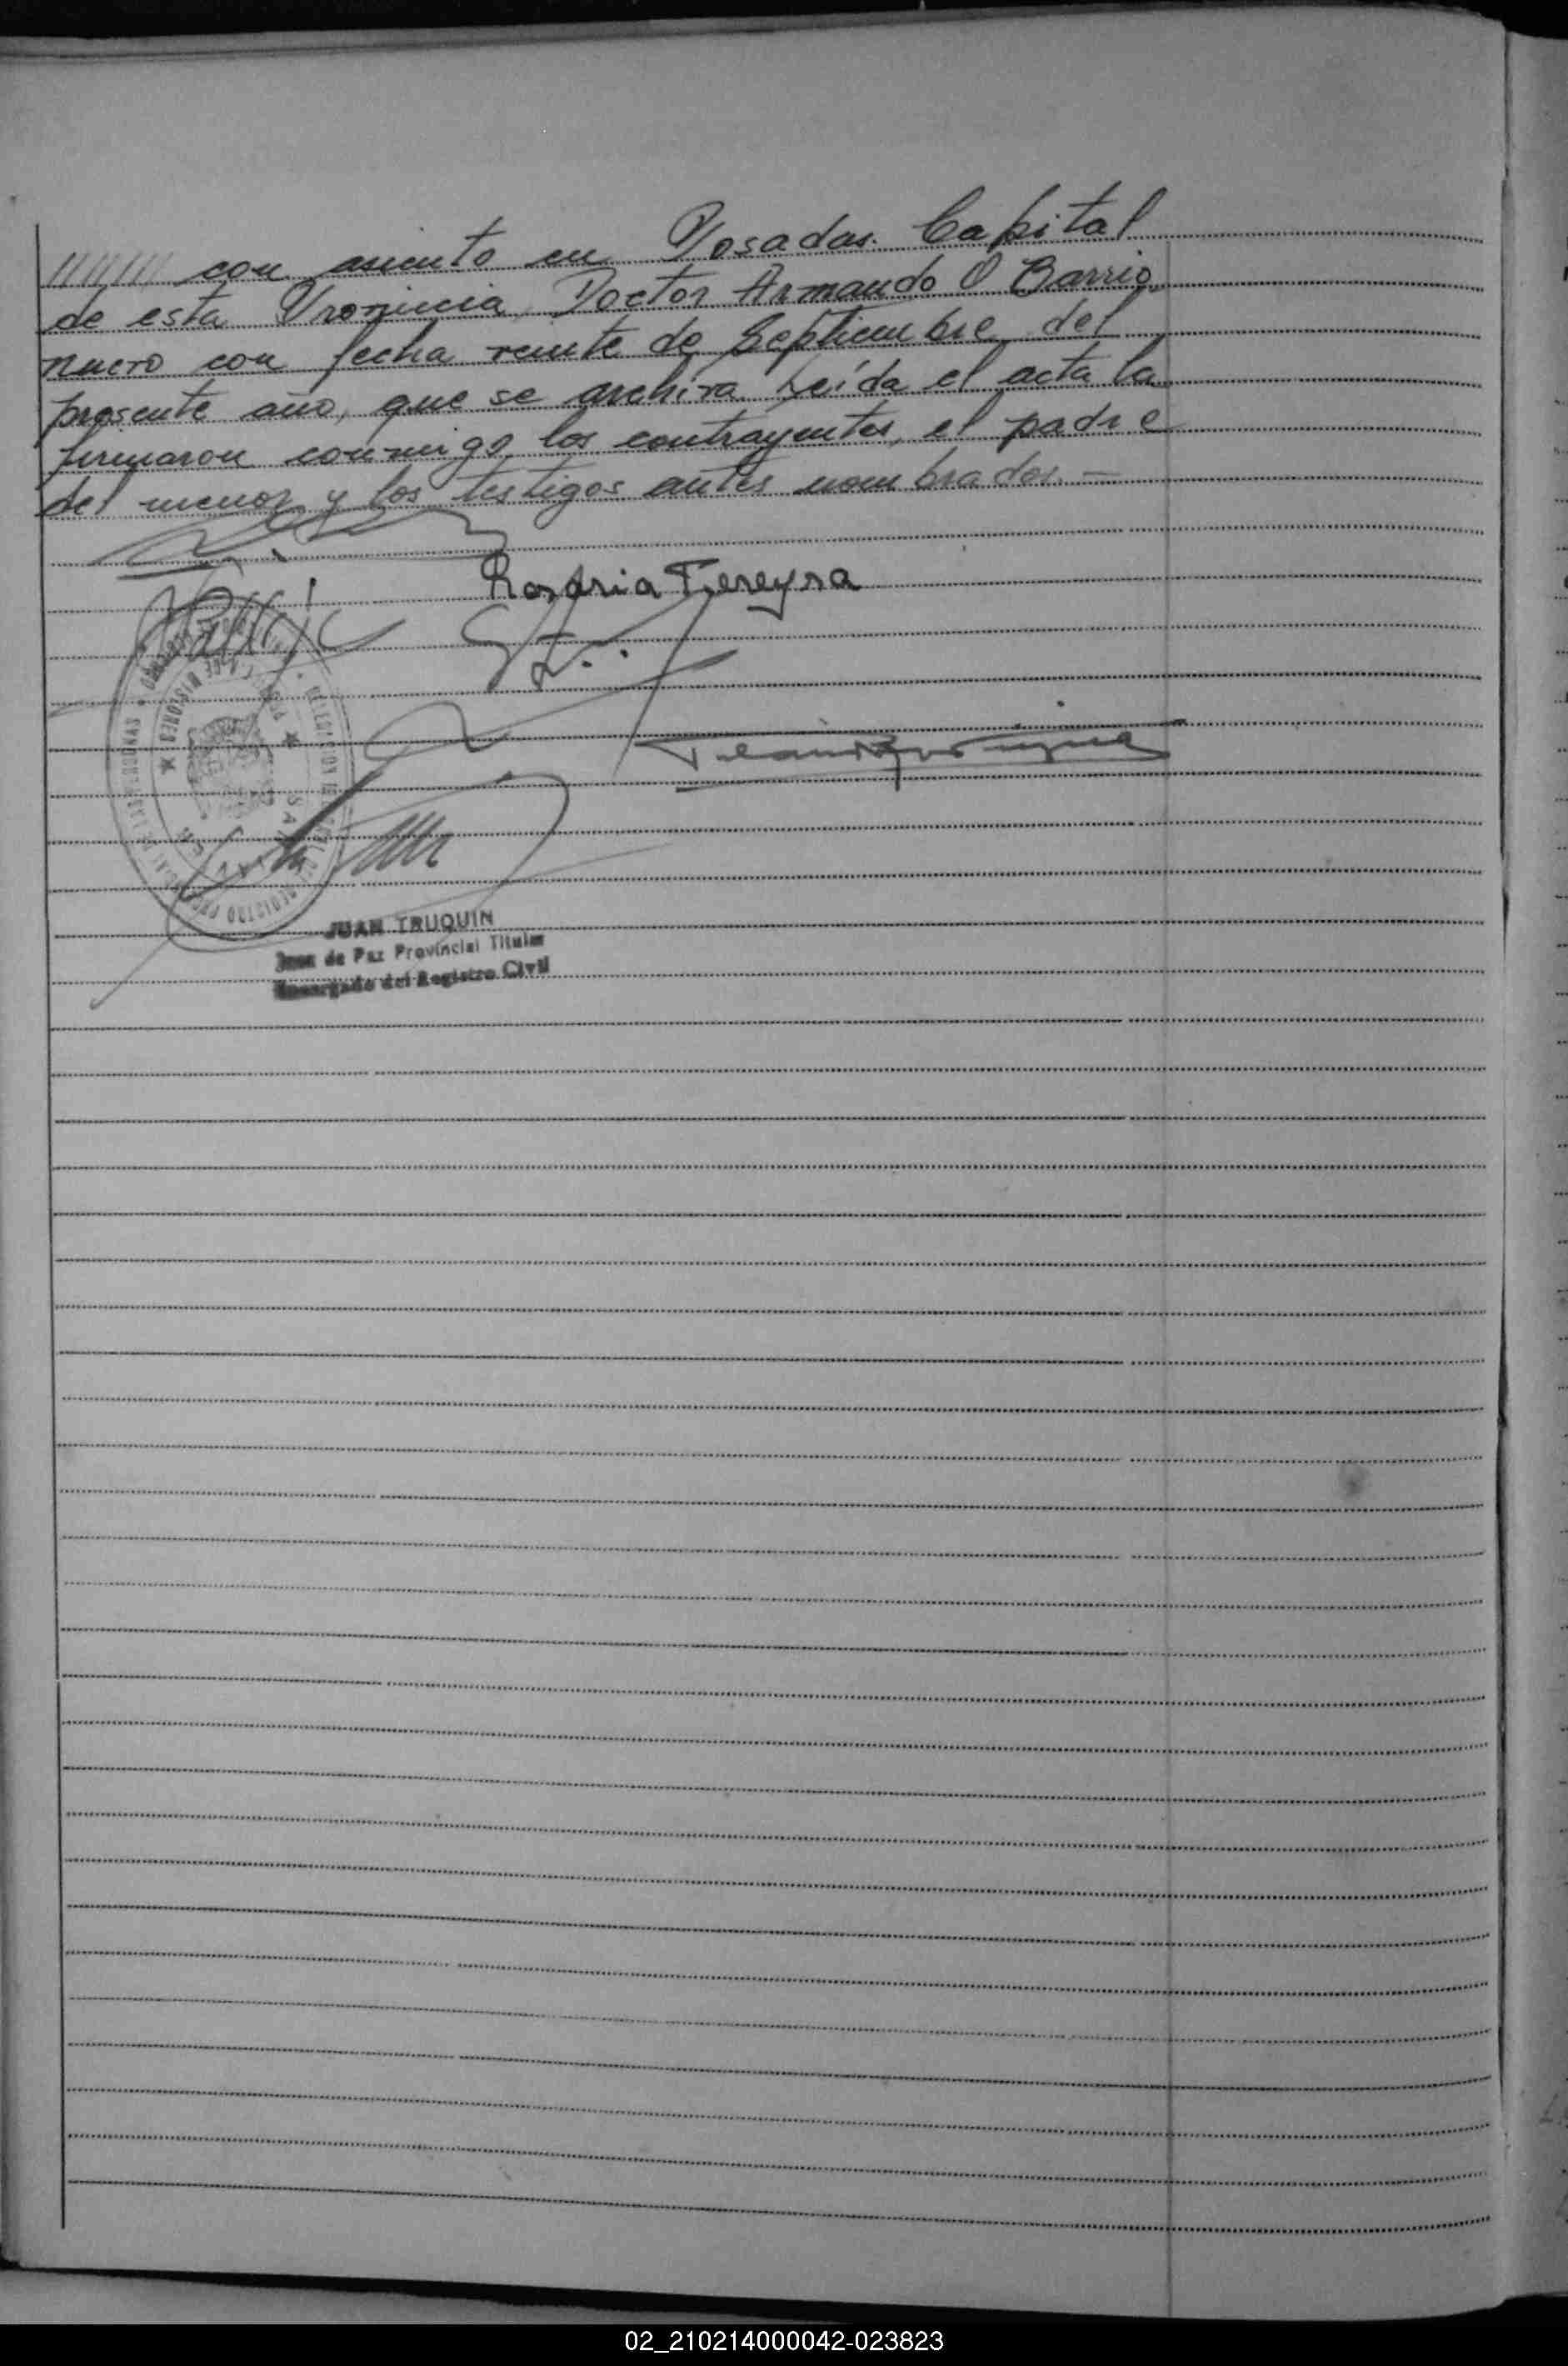 ////// con asiento en Posadas. Capital
de esta Provincia, Doctor Armando O Barrio
nuevo con fecha veinte de Septiembre del
presente año, que se archiva. Leída el acta la
firmaron conmigo, los contrayentes, el padre
del menor y los testigos antes nombrados. —
Rosaria Fereyra
JUAN TRUQUIN
Juez de Paz Provincial Titular
Encargado del Registro Civil
02_210214000042-023823